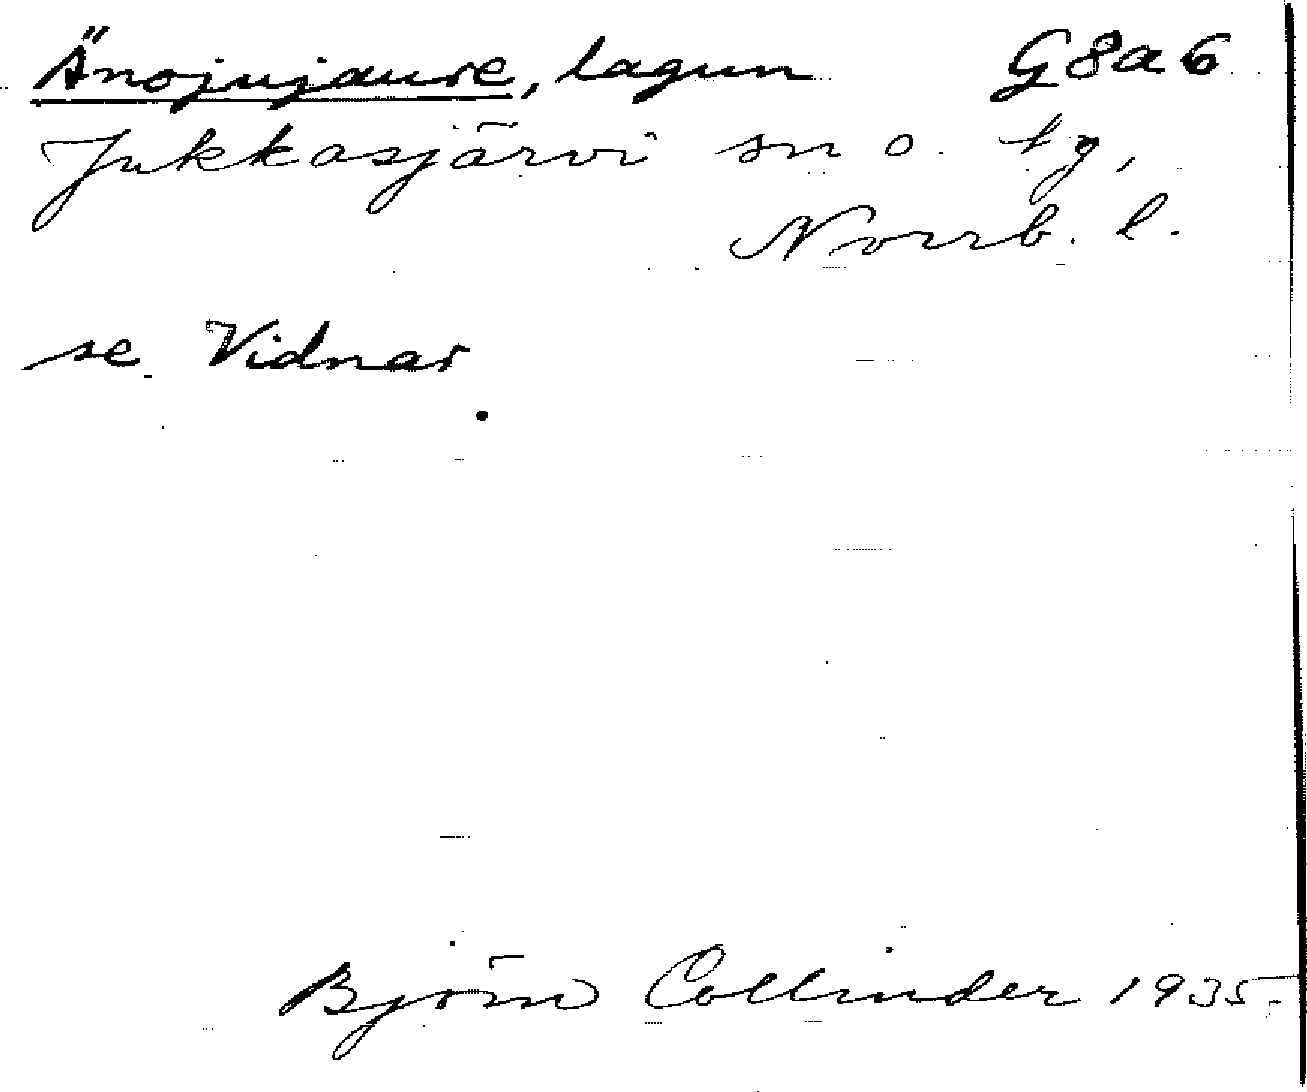 Änojujaure, lagun G8a6
Jukkasjärvi sn o. tg,
Norrb. l.
se Vidnar
Björn Collinder 1935.